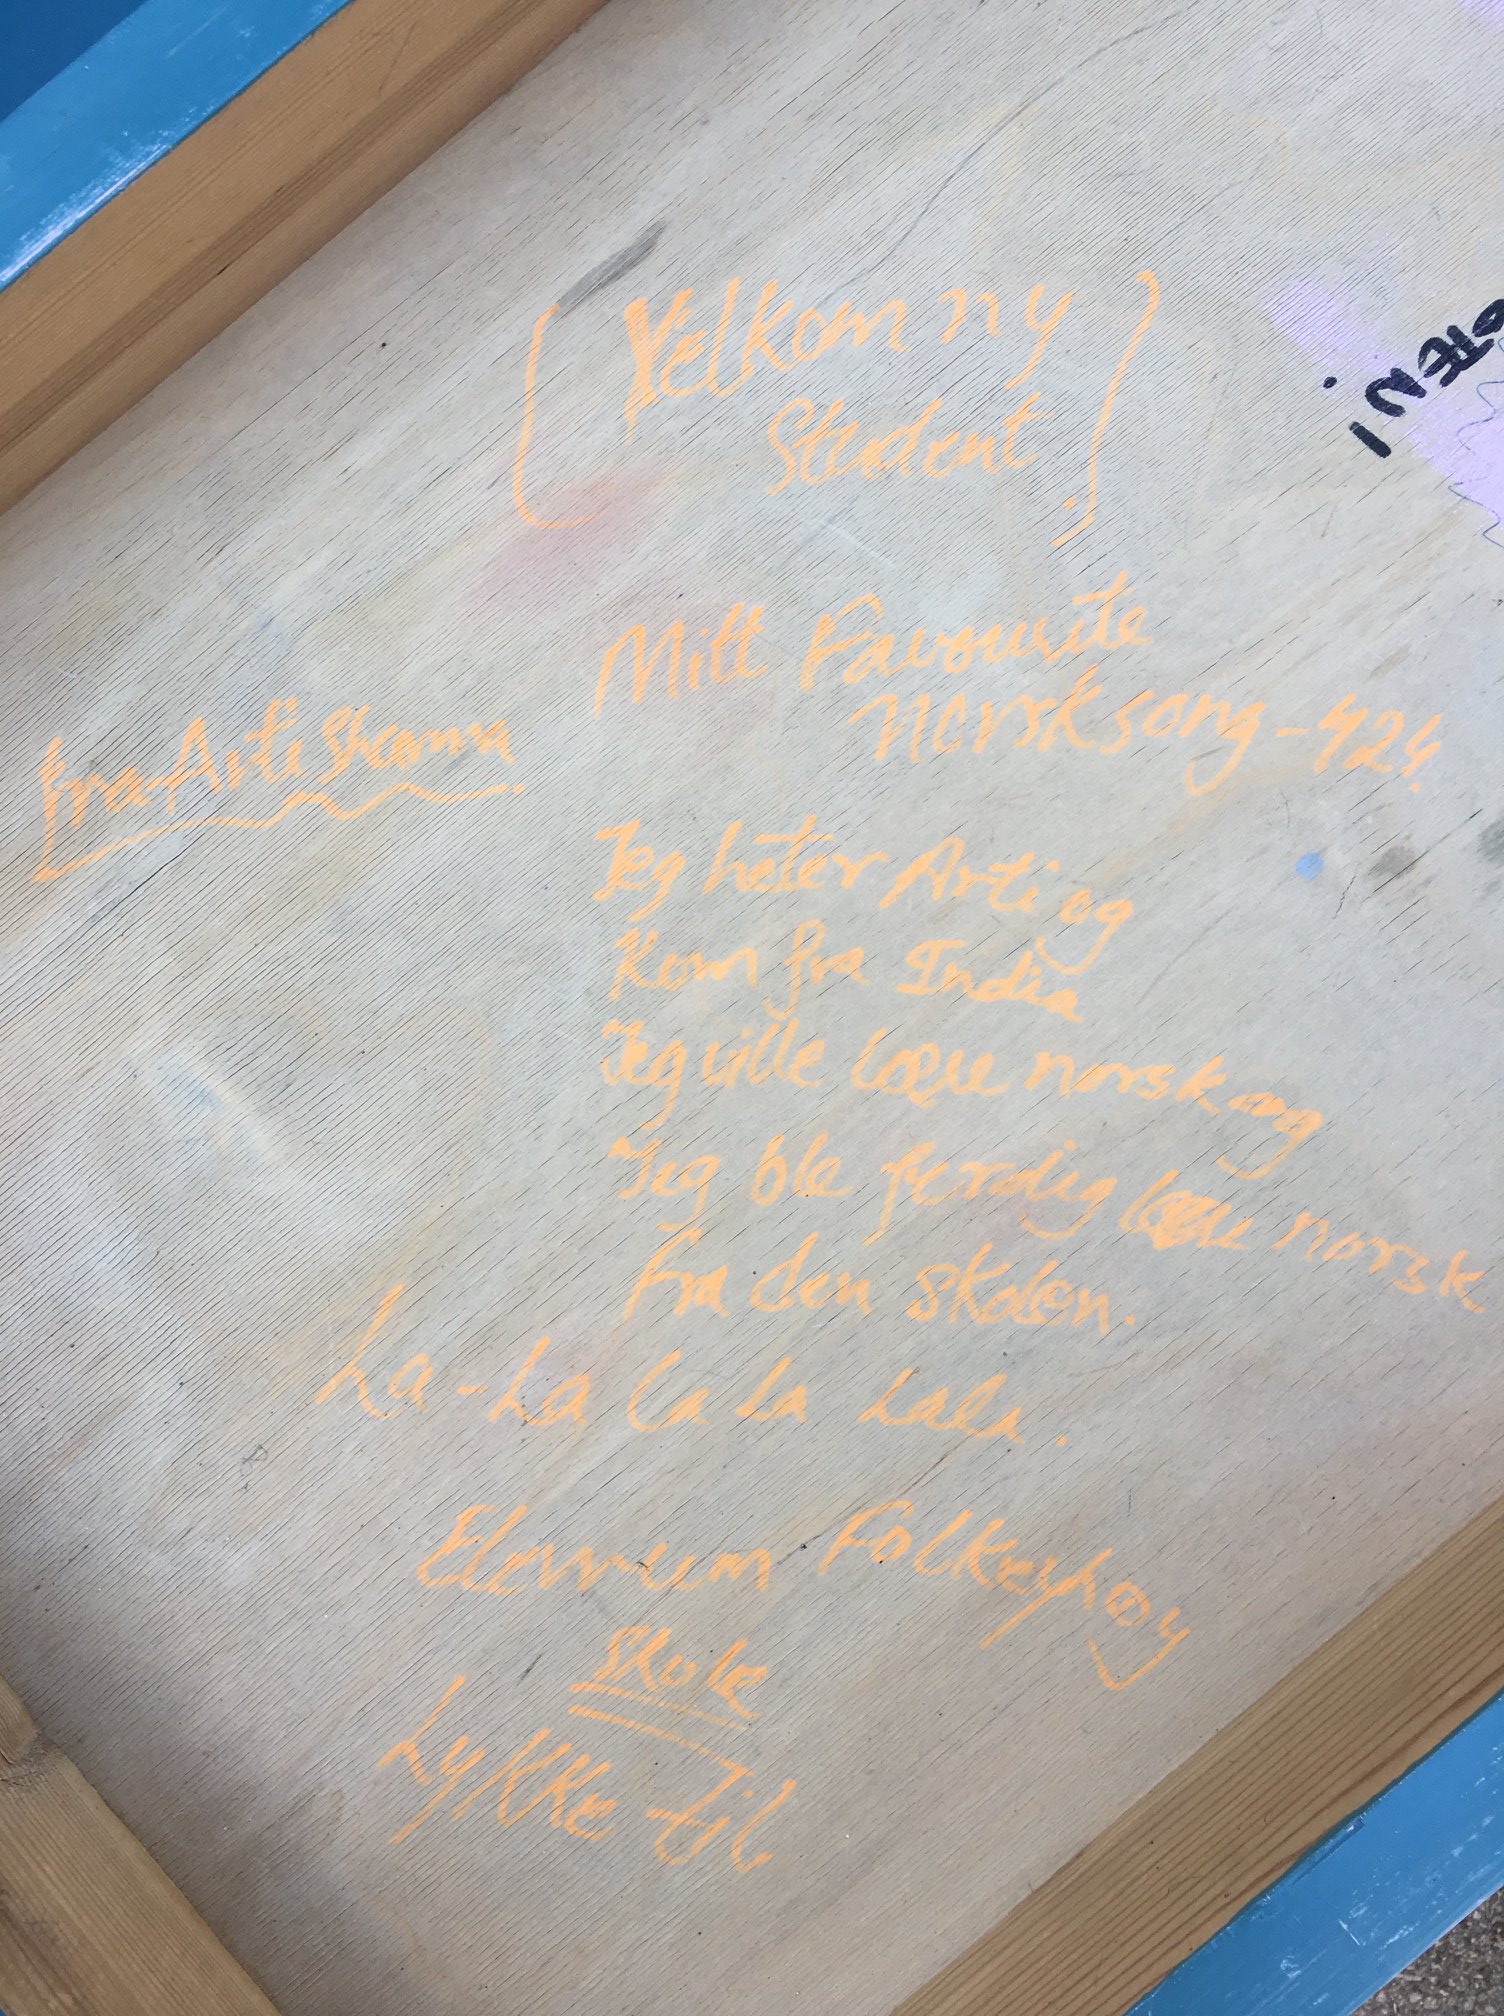 Velkom ny
Student
Mitt Favourite
norsk song - 424
Fra Arti Sharma
Jeg heter Arti og
Kom fra India
Jeg ville lære norsk og
Jeg ble ferdig lære norsk
fra den skolen.
La - La La La Lala.
Elverum Folkeshøy
Skole
Lykke til